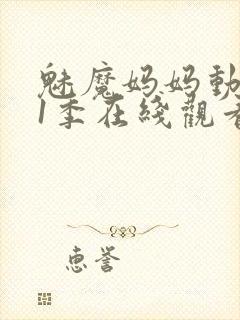 魅魔妈妈動
1季在綫觀看
惠誉